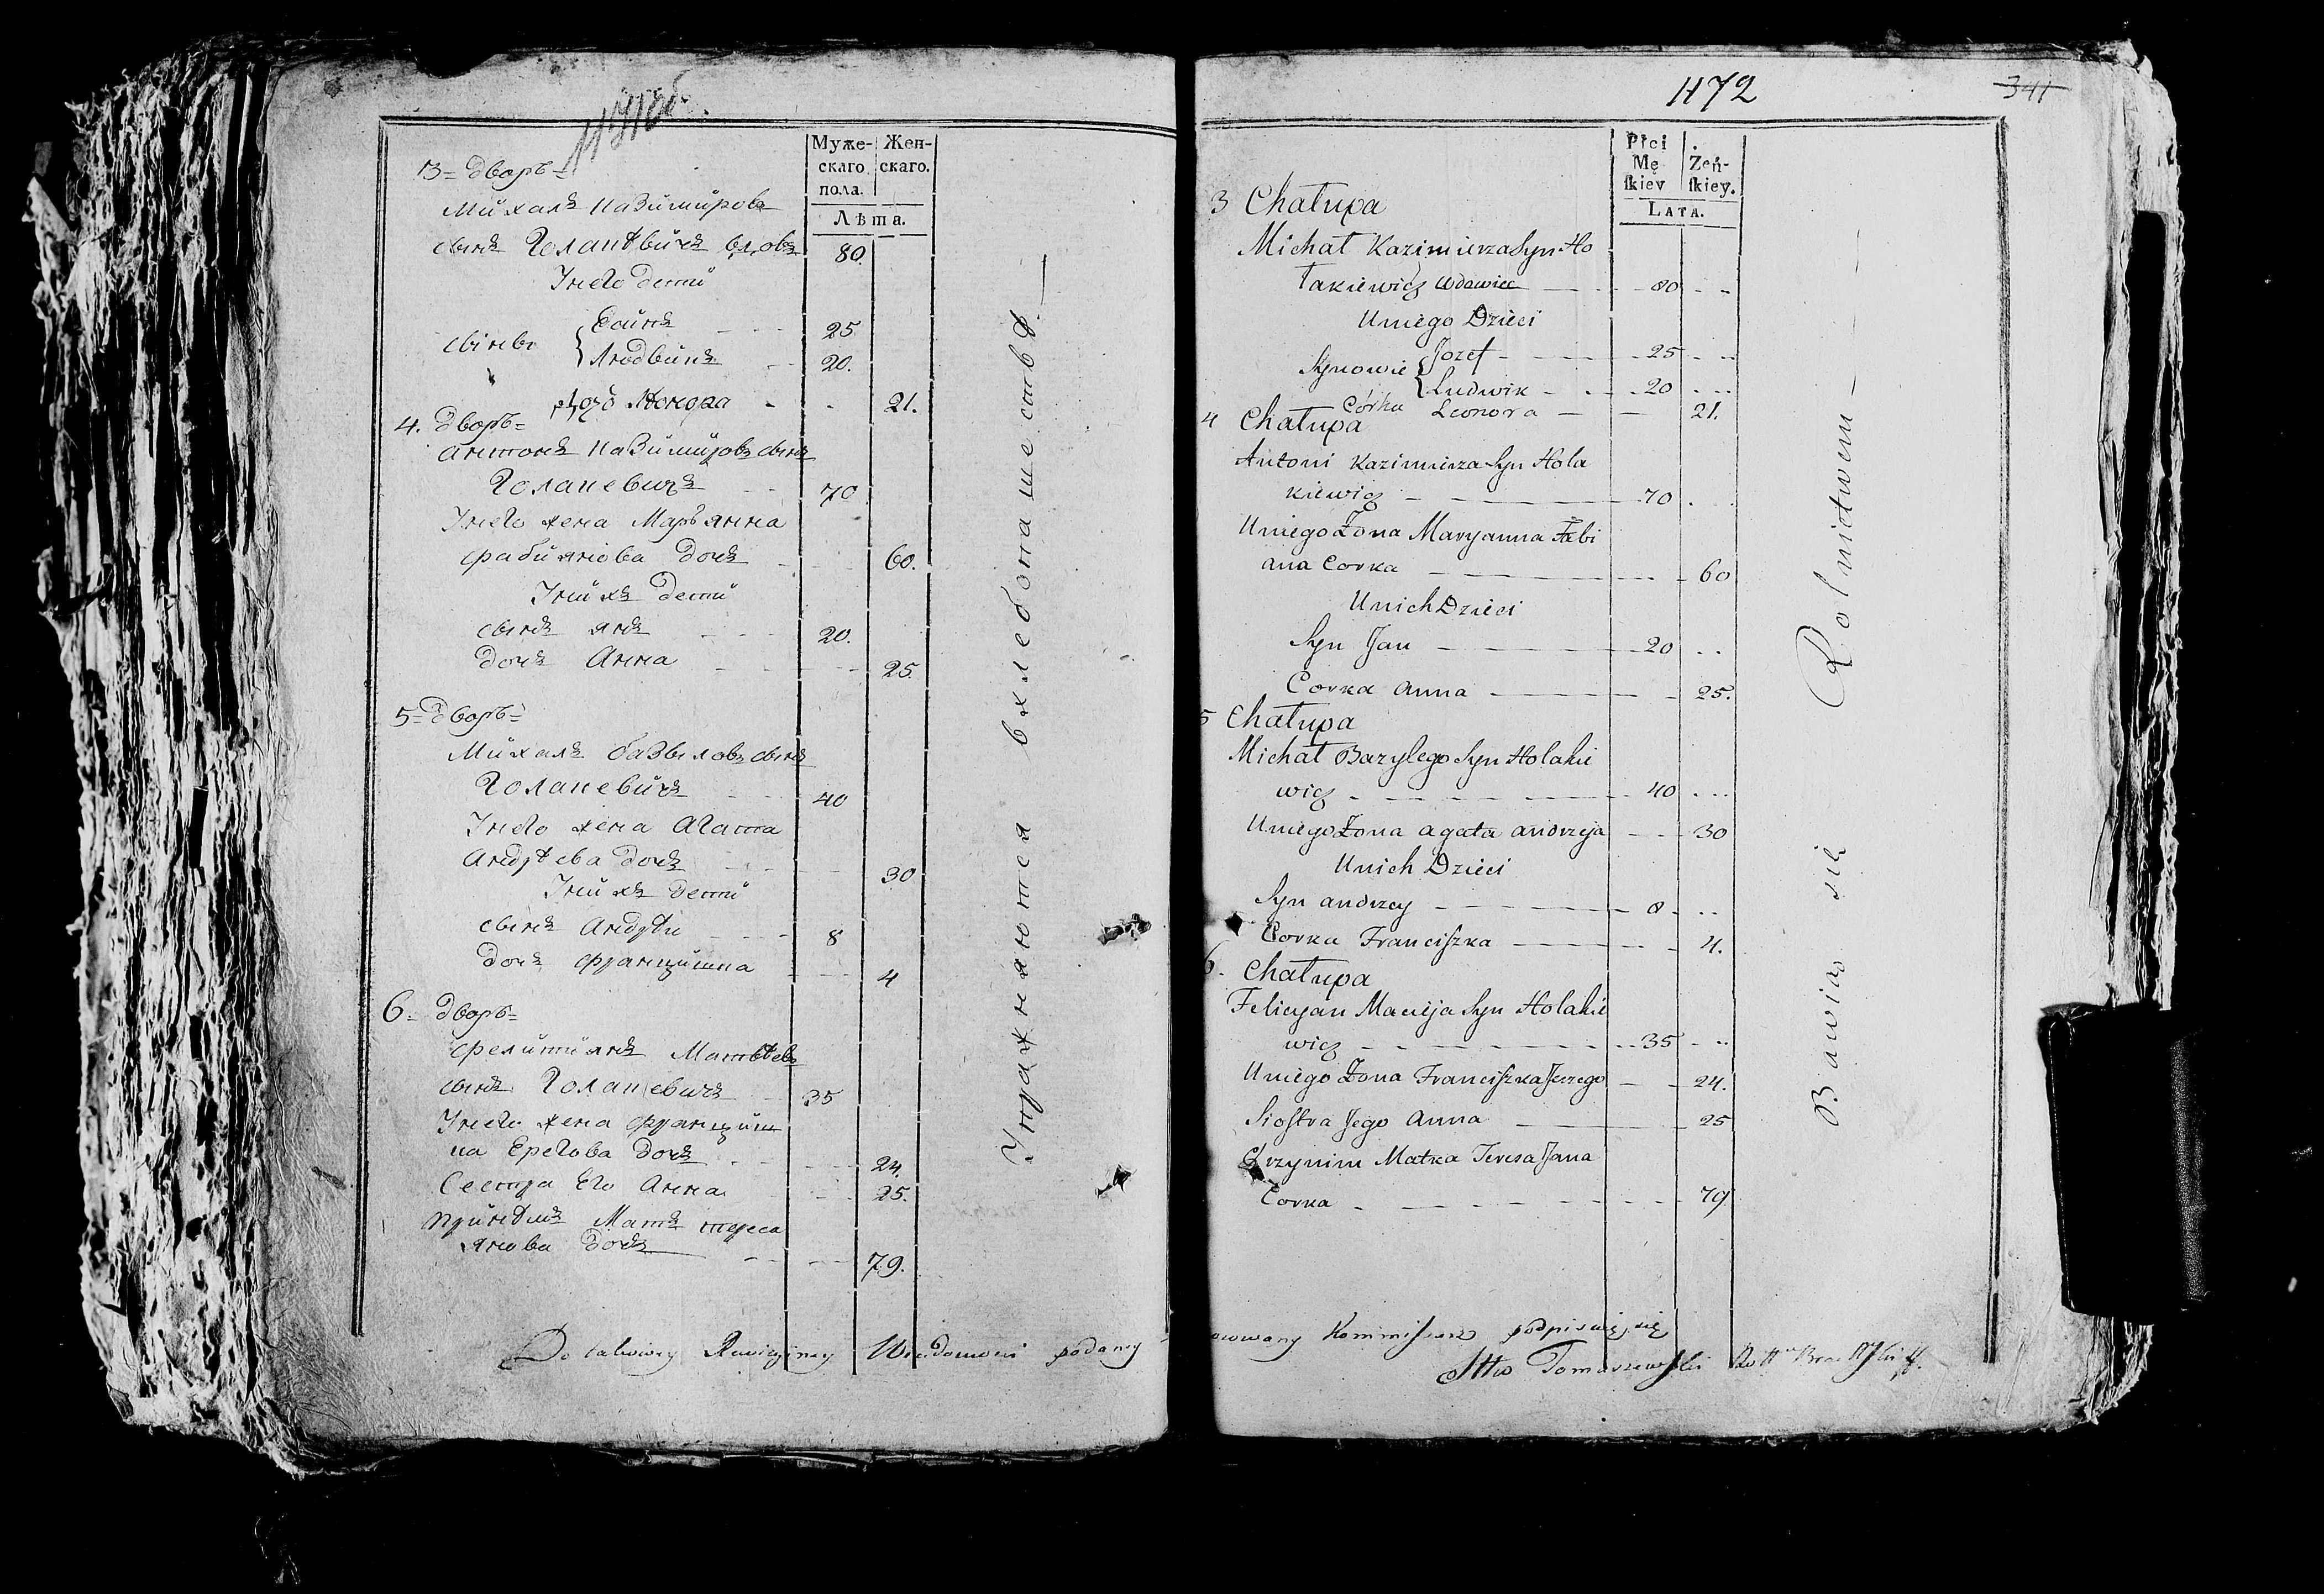 Муже-
скаго
пола.
Жен-
скаго.
Лѣта.
3= дворъ=
Михалъ Казимировъ
сынъ Голакѣвичъ вдовъ 80.
Унего дети
сыновъ
25.
Людвикъ 20.
дочь 21.
4. дворъ=
Антонъ Казимировъ сынъ
Голакевичъ 70
Унего жена Марьянна
Фабиянова дочь 60.
Унихъ дети
сынъ янъ 20.
дочь Анна 25.
5= дворъ=
Михалъ базылювъ сынъ
Голакевичъ 40
Унего жена Агата
Андрѣева дочь 30
Унихъ дети
сынъ Андрѣи 8
дочь францишка 4
6= дворъ=
Фелитиянъ Матвѣевъ
сынъ Голакевичъ 35
Унего жена франциш
ка Ерегова дочь 24.
Сестра Его Анна 25.
принѣмъ Мать тереса
янова дочь 79.
Упражняются вхлебопашествѣ.
Do takowey Rewizyiney Wiadomości podaney
1172
341
Płci
Mę
ſkiey
Zeń-
ſkiey.
LATA.
3 Chałupa
Michał Kazimierza Syn Ho
łakiewicz Wdowiec 80
Uniego Dzieci
Synowie
Jozef 25
Ludwik 20
Córka Leonora 21.
4 Chałupa
Antoni Kazimierza Syn Hola
kiewicz 70
Uniego Żona Maryanna Fabi
ana Corka 60
Unich Dzieci
Syn Jan 20
Corka Anna 25.
5 Chałupa
Michał Bazylego Syn Holakie
wicz 40
Uniego Żona Agata Andrzeja 30
Unich Dzieci
Syn Andrzey 8
Corka Franciſzka 4.
6. Chałupa
Felicyan Macieja Syn Holakie
wicz 35
Uniego Żona Franciſzka Jerzego 24.
Sioſtra Jego Anna 25
Przynim Matka Teresa Jana
Corka 79
Bawią się Rolnictwem
Kommiſsarz podpisuię się
Tomaszewſki